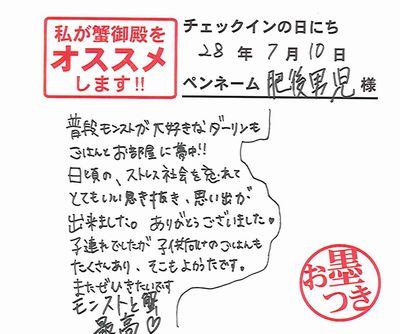 私が蟹御殿を
オススメ
します!!
チェックインの日にち
28年7月10日
ペンネーム 肥後男児 様
普段モンストが大好きなダーリンも
ごはんとお部屋に夢中!!
日頃の、ストレス社会を忘れて
とてもいい息き抜き、思い出が
出来ました。ありがとうございました♡
子連れでしたが子供向けのごはんも
たくさんあり、そこもよかったです。
またぜひきたいです
モンストと蟹
最高♡
お墨つき